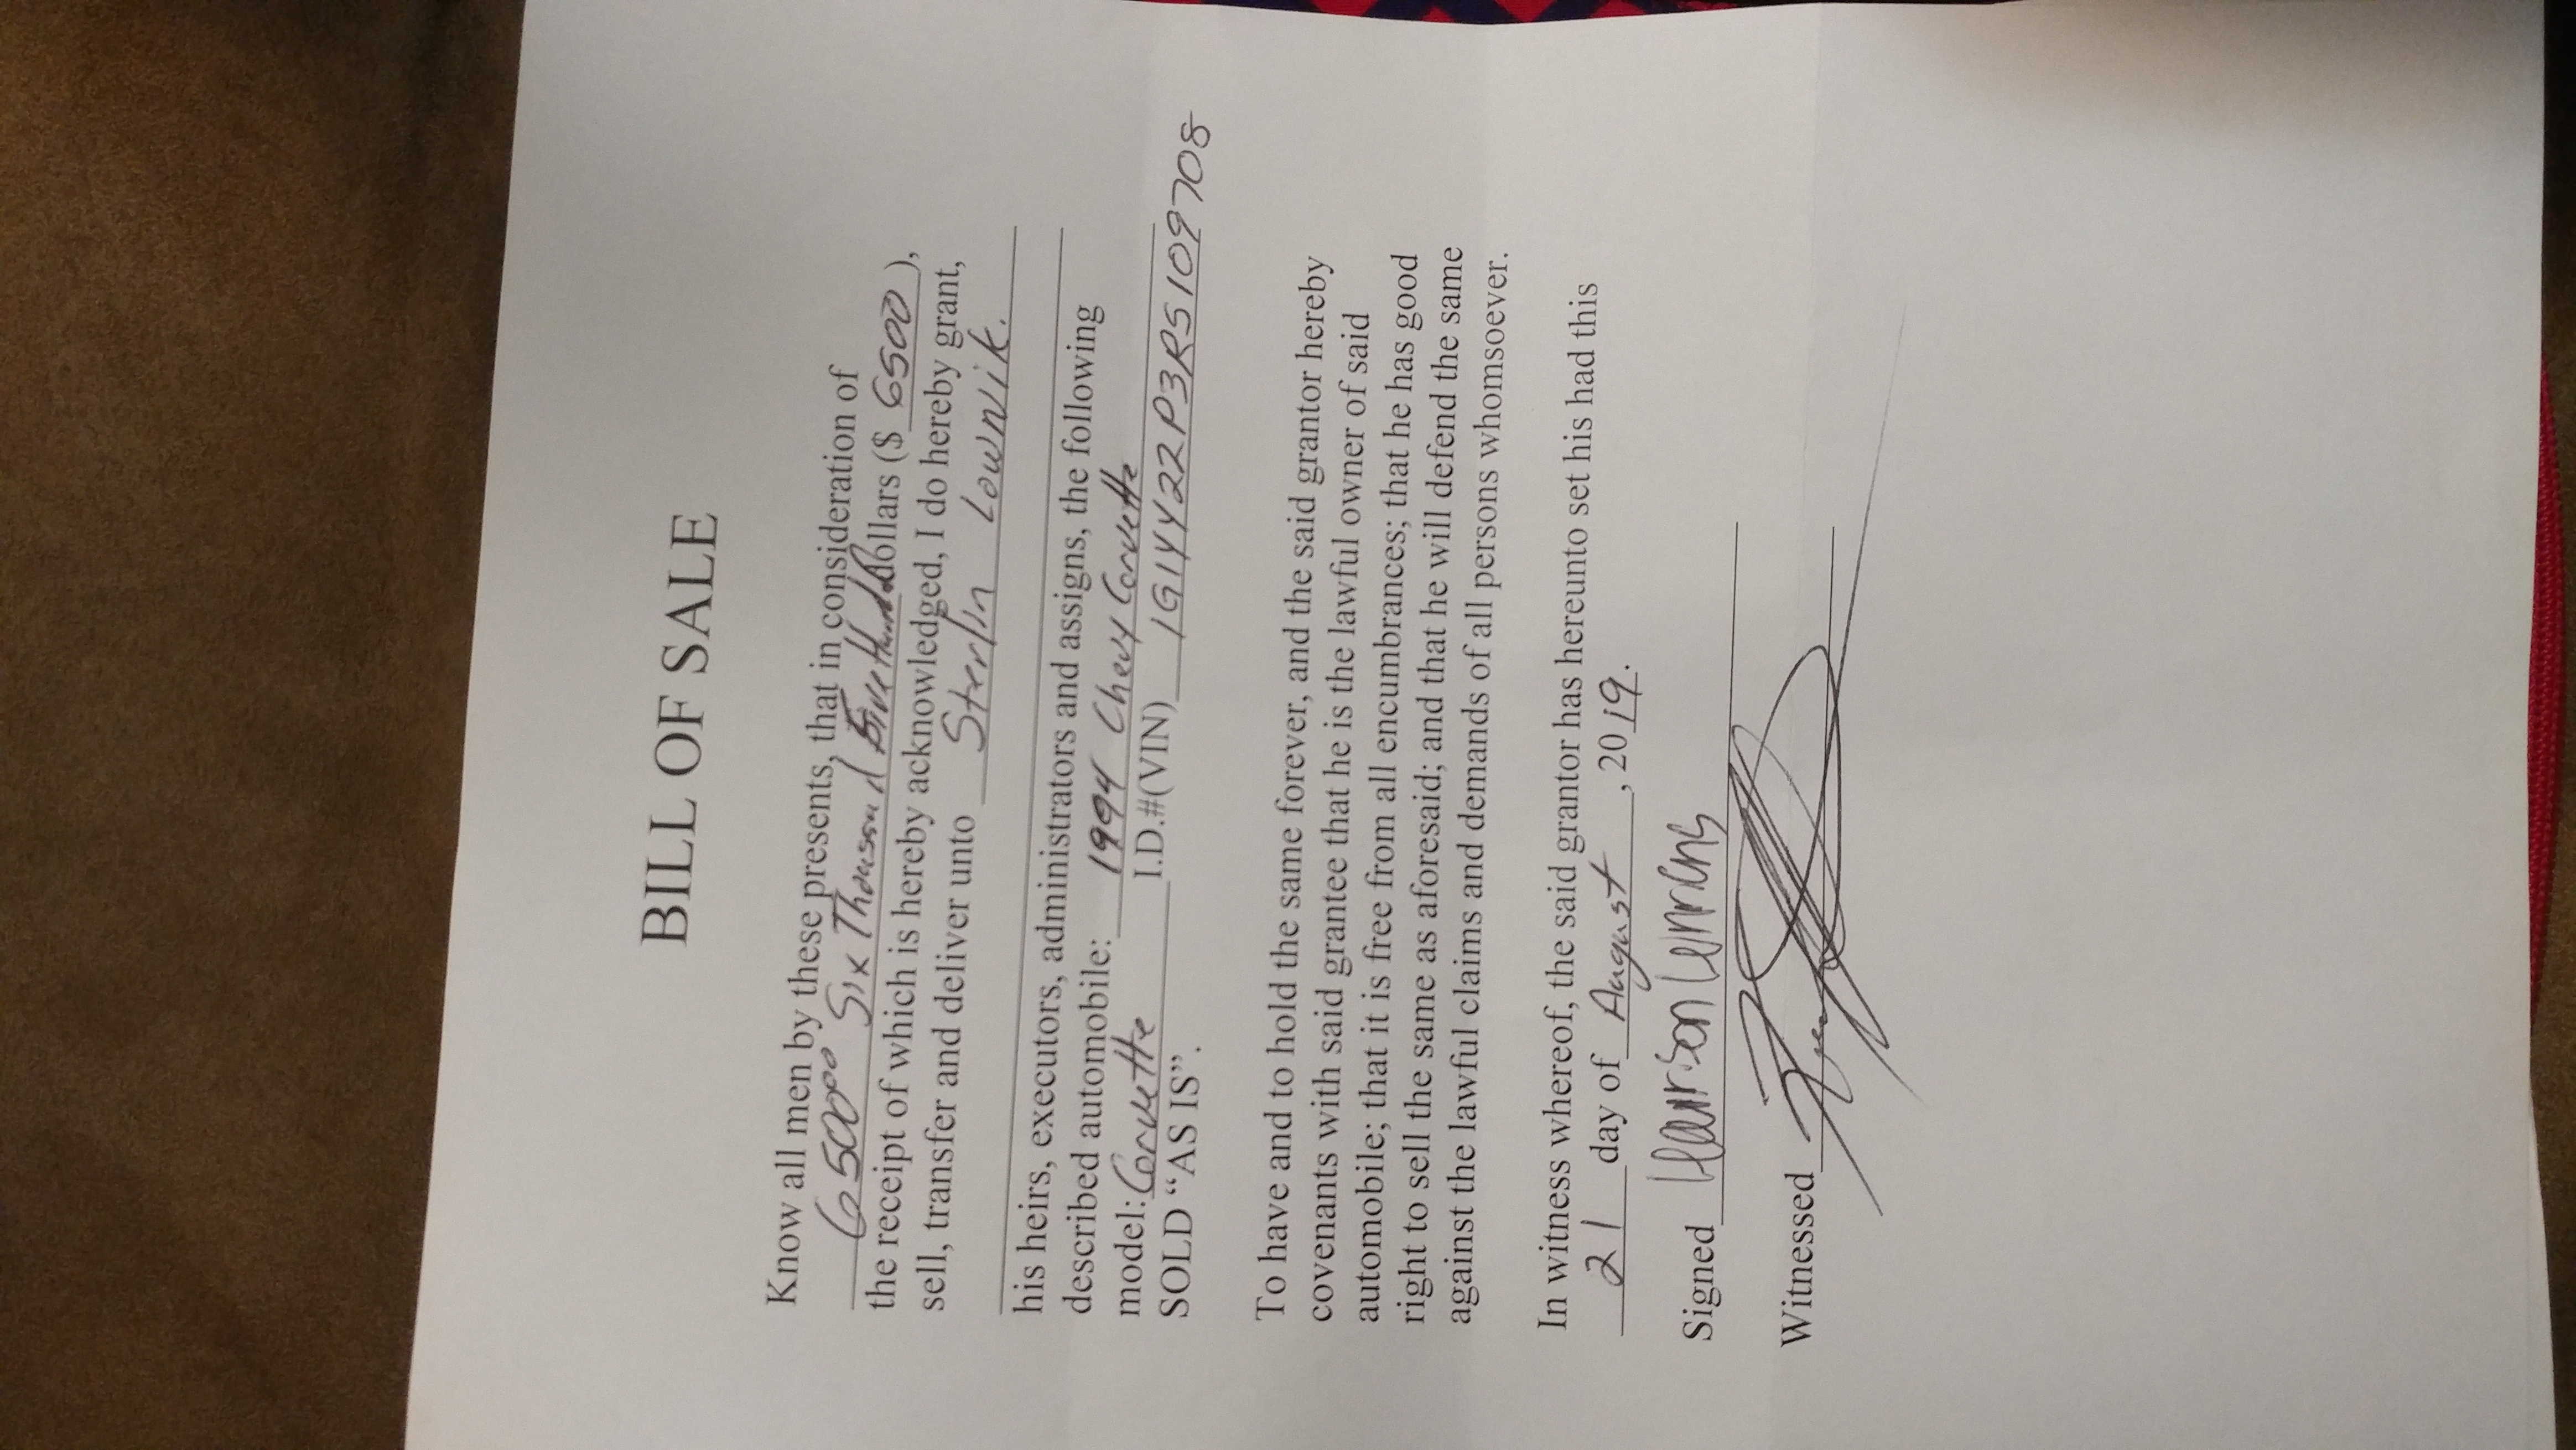 BILL OF SALE
Know all men by these presents, that in consideration of
6500 00 Six Thousand Five Hundred dollars ($ 6500 ),
the receipt of which is hereby acknowledged, I do hereby grant,
sell, transfer and deliver unto Sterlin Lownik.
his heirs, executors, administrators and assigns, the following
described automobile: 1994 Chevy Corvette
model: Corvette I.D.#(VIN) 1G1YY22P3R5109708
SOLD “AS IS”.
To have and to hold the same forever, and the said grantor hereby
covenants with said grantee that he is the lawful owner of said
automobile; that it is free from all encumbrances; that he has good
right to sell the same as aforesaid; and that he will defend the same
against the lawful claims and demands of all persons whomsoever.
In witness whereof, the said grantor has hereunto set his had this
21 day of August, 2019.
Signed
Witnessed